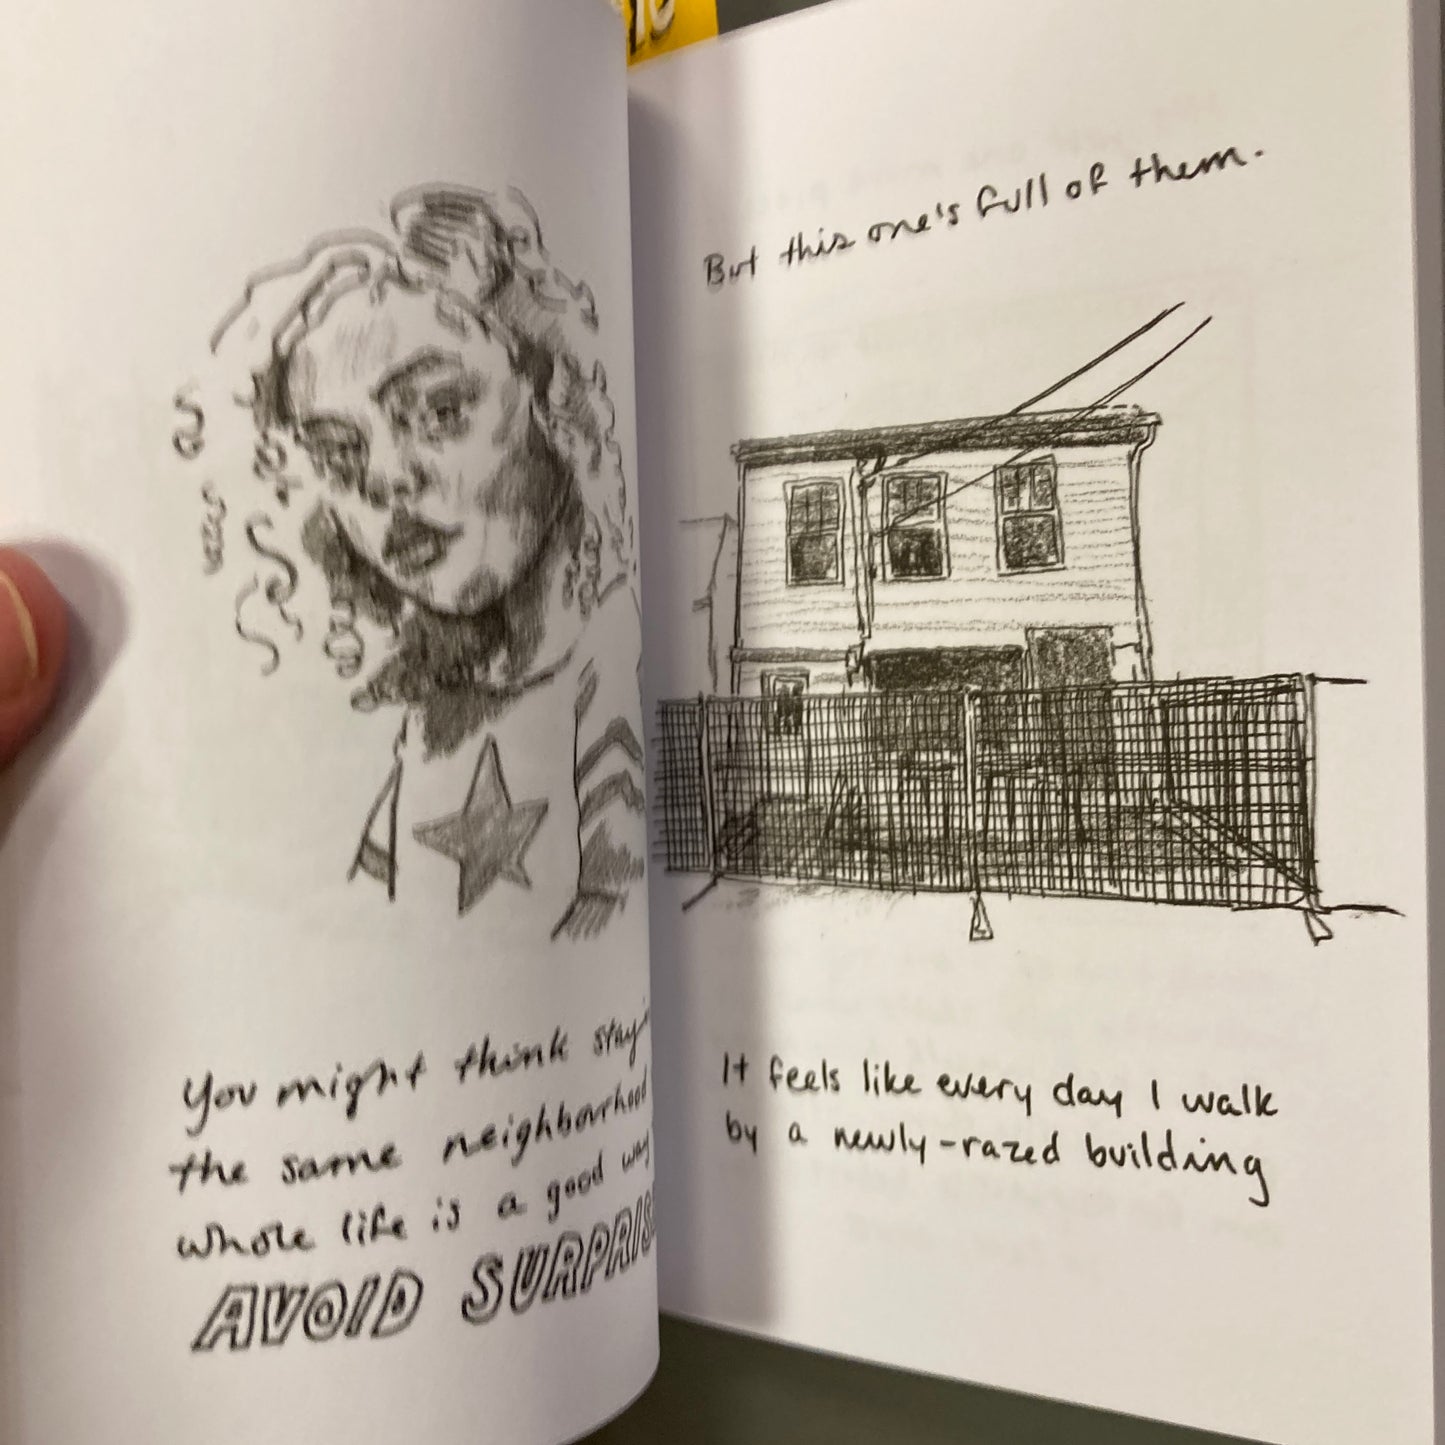 You might think
the same neighbourhood
whole life is a good way
AVOID
But this one's full of them.
It feels like every day I walk
by a newly-razed building